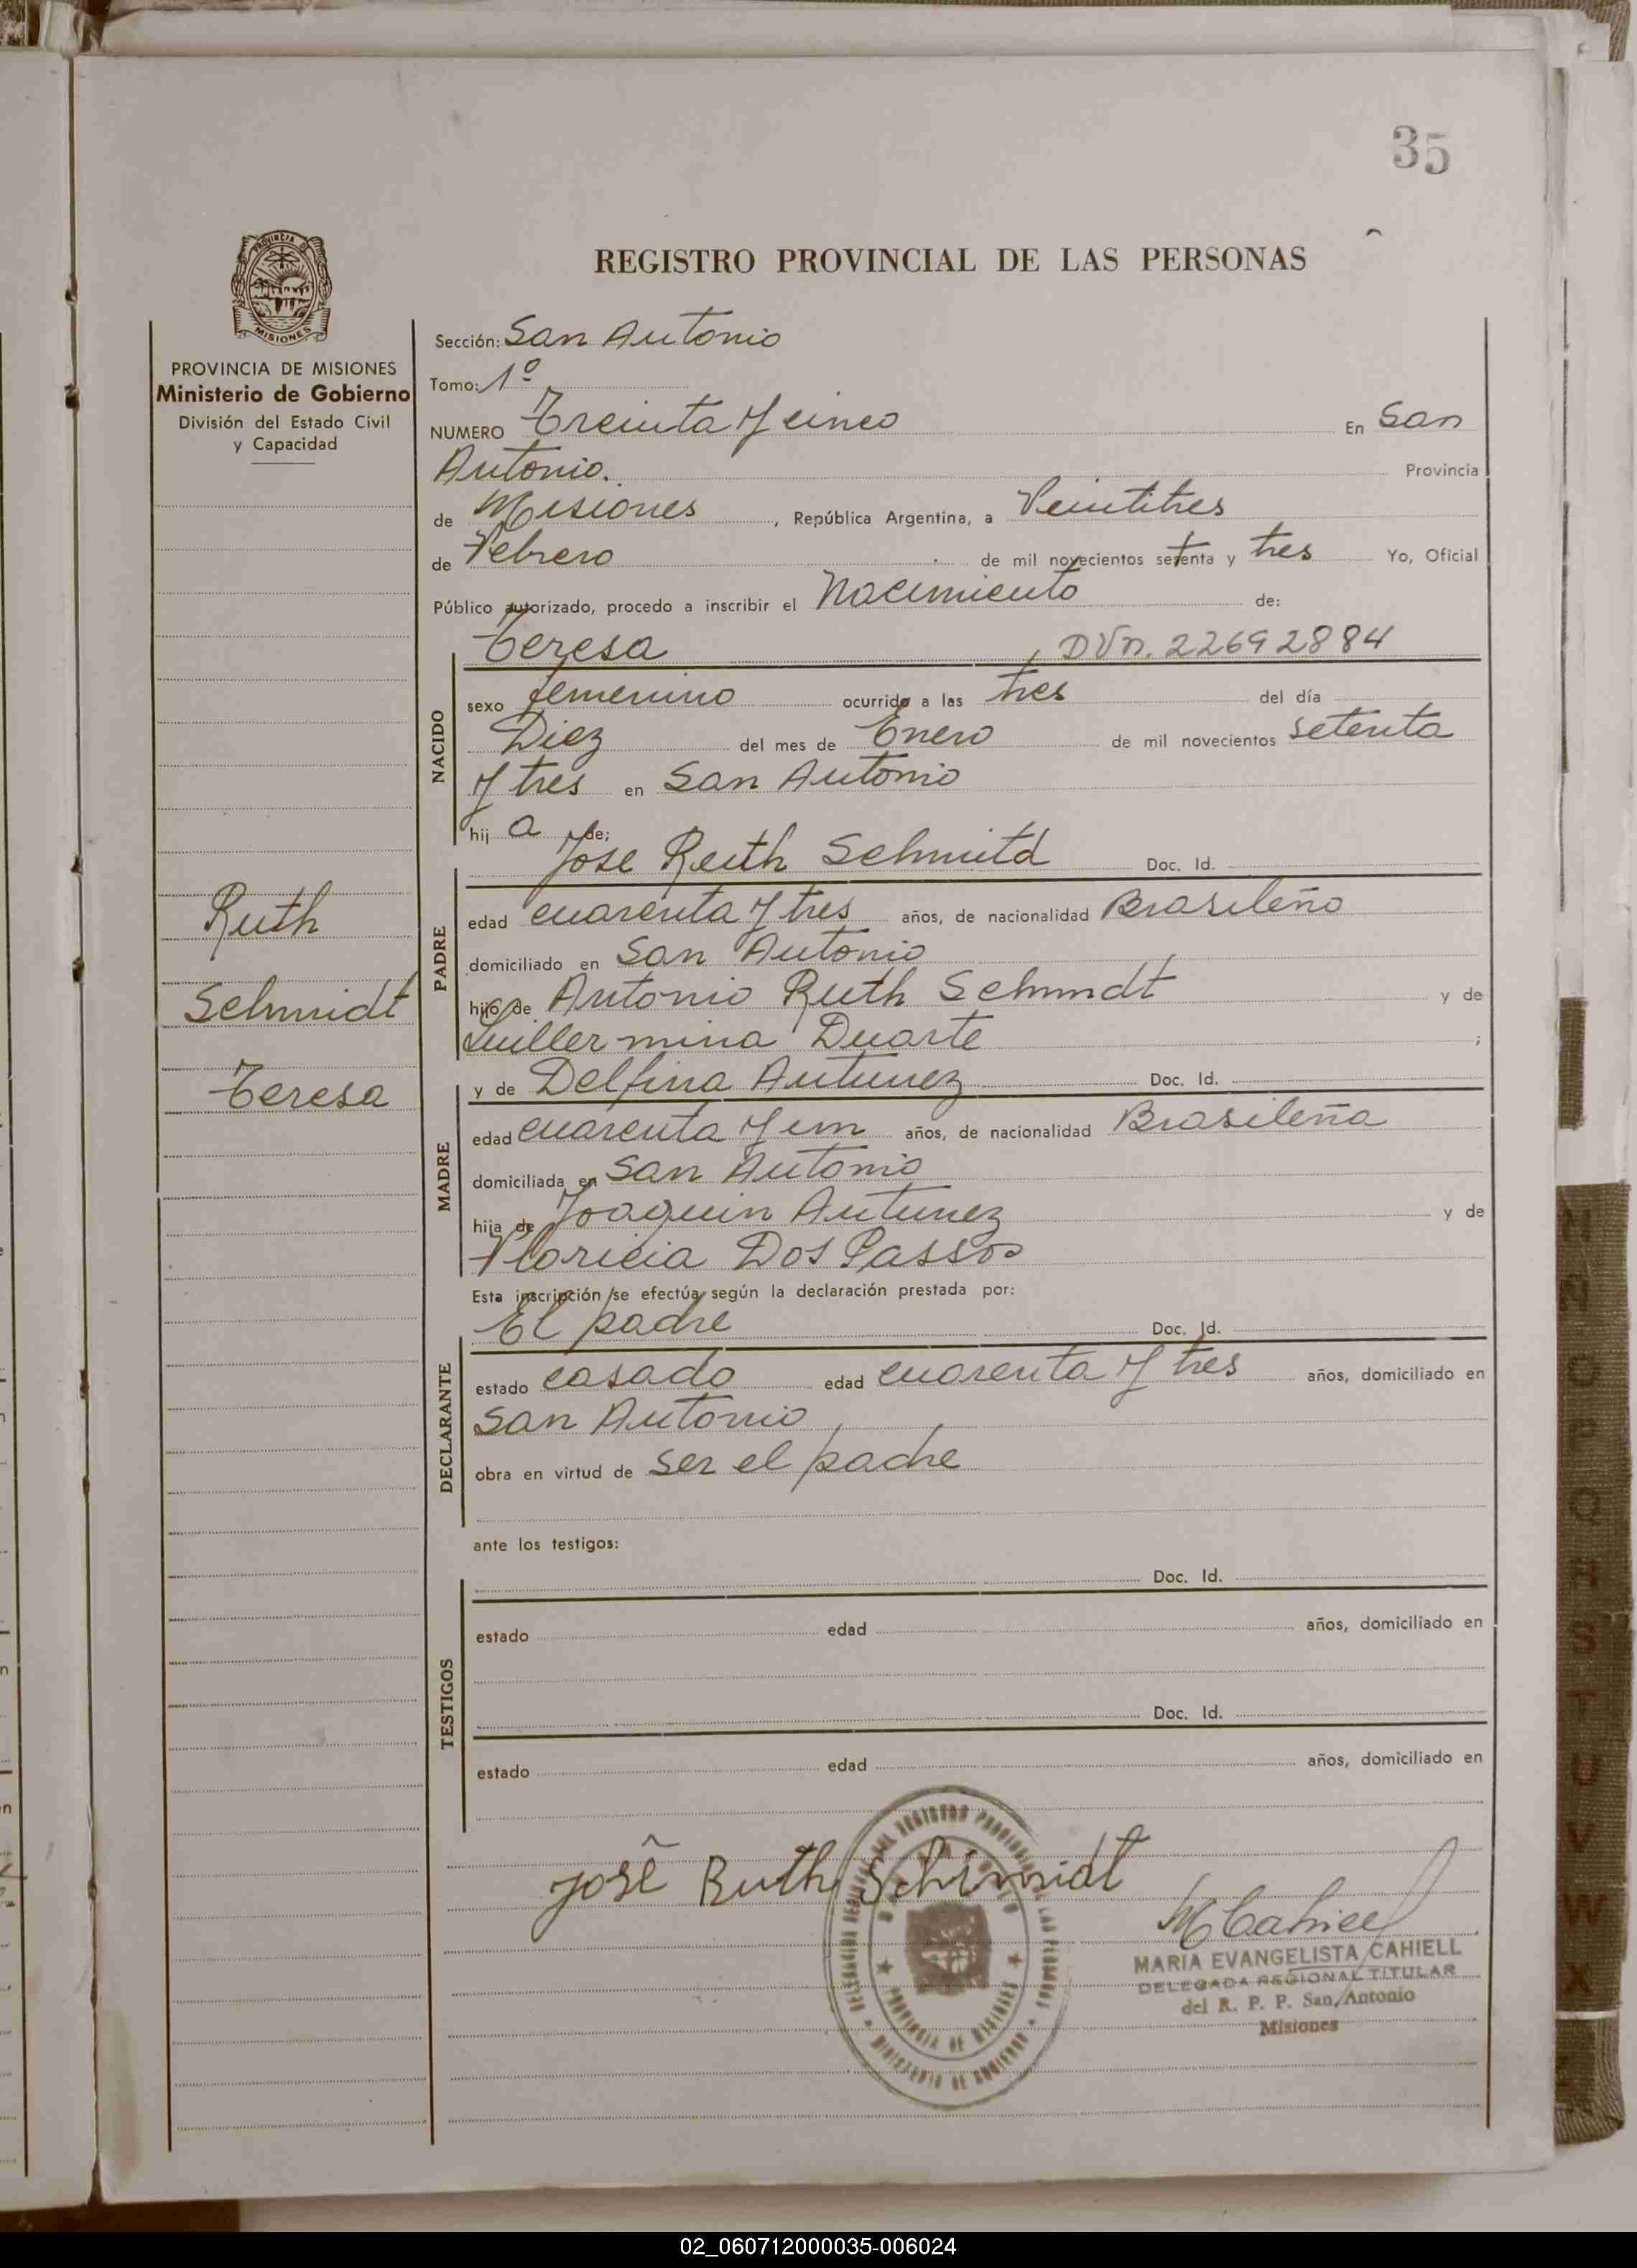 35
PROVINCIA DE MISIONES
Ministerio de Gobierno
División del Estado Civil
y Capacidad
Ruth
Schmidt
Teresa
REGISTRO PROVINCIAL DE LAS PERSONAS
Sección: San Antonio
Tomo: 1º
NUMERO Treinta y cinco En San
Antonio. Provincia
de Misiones, República Argentina, a Veintitres
de Febrero de mil novecientos setenta y tres Yo, Oficial
Público autorizado, procedo a inscribir el Nacimiento de:
Teresa, DVn. 22692884
NACIDO
sexo femenino ocurrido a las tres del día
Diez del mes de Enero de mil novecientos setenta
y tres en San Antonio
hij a de;
Jose Ruth Schmitd Doc. Id.
PADRE
edad cuarenta y tres años, de nacionalidad Brasileño
domiciliado en San Antonio
hijo de Antonio Ruth Schmidt y de
Guillermina Duarte ;
y de Delfina Antunez Doc. Id.
MADRE
edad cuarenta y un años, de nacionalidad Brasileña
domiciliada en San Antonio
hija de Joaquin Antunez y de
Floricia Dos Passos
Esta inscripción se efectúa según la declaración prestada por:
El padre Doc. Id.
DECLARANTE
estado casado edad cuarenta y tres años, domiciliado en
San Antonio
obra en virtud de ser el padre
ante los testigos:
Doc. Id.
TESTIGOS
estado edad años, domiciliado en
Doc. Id.
estado edad años, domiciliado en
José Ruth Schimidt
MCahiell
MARIA EVANGELISTA CAHIELL
DELEGADA REGIONAL TITULAR
del R. P. P. San Antonio
Misiones
PROVINCIA DE MISIONES
MINISTERIO DE GOBIERNO
02_060712000035-006024